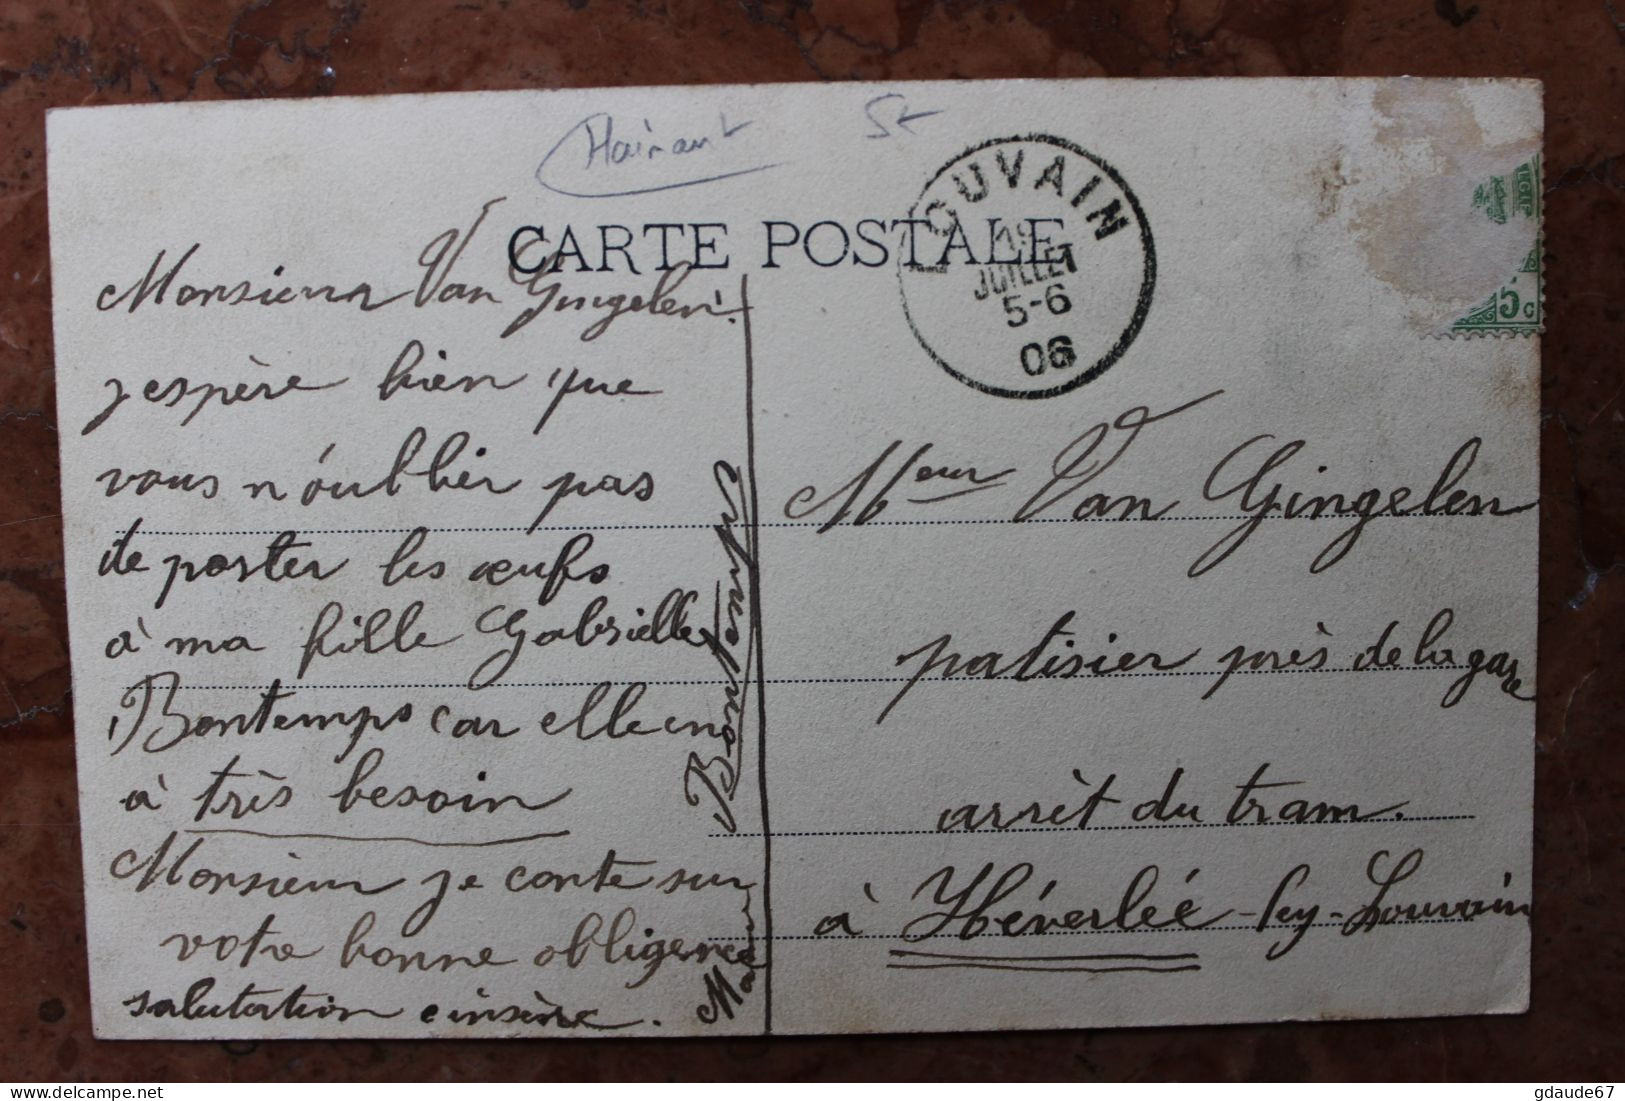 Hainaut
5€
CARTE POSTALE
LOUVAIN
19
JUILLET
5-6
06
5c
Monsieur Van Gingelen
j'espère bien que
vous n'oublier pas
de porter les œufs
à ma fille Gabrielle
Bontemps car elle en
à très besoin
Monsieur je conte sur
votre bonne obligence
salutation cinsère.
Bontemps
Meur Van Gingelen
patisier près de la gare
arrêt du tram.
à Héverlée-ley-Louvain
gdaude67